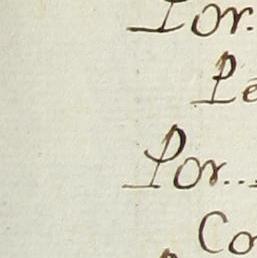 Por.
Pe
Por...
Co